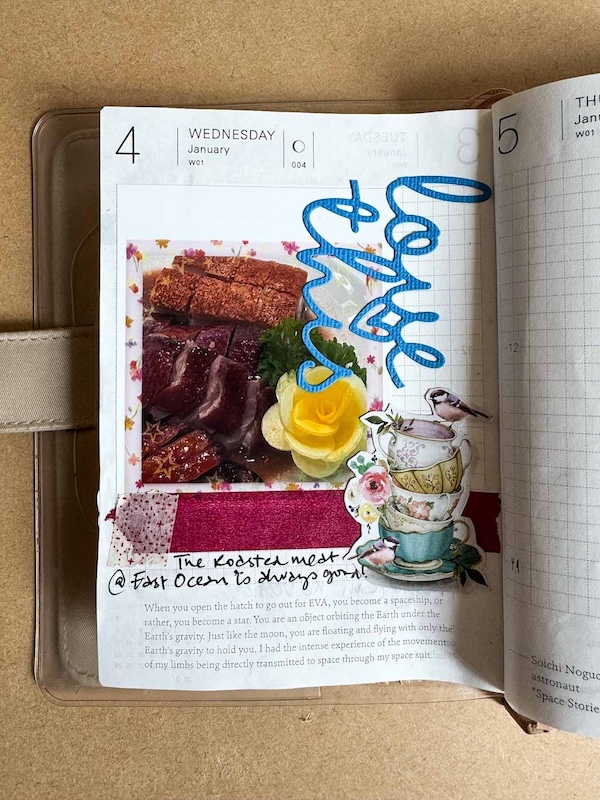 4
WEDNESDAY
January
W01
004
love
this
The Roasted meat
@ East Ocean is always good!
When you open the hatch to go out for EVA, you become a spaceship, or
rather, you become a star. You are an object orbiting the Earth under the
Earth's gravity. Just like the moon, you are floating and flying with only the
Earth's gravity to hold you. I had the intense experience of the movement
of my limbs being directly transmitted to space through my space suit.
5
THU
Janu
W01
12
Soichi Noguc
astronaut
"Space Storie